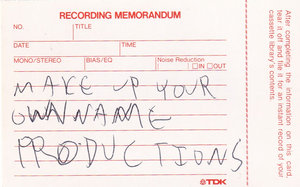 RECORDING MEMORANDUM
NO. TITLE
DATE TIME
MONO/STEREO BIAS/EQ Noise Reduction
IN OUT
MAKE UP YOUR
OWN NAME
PRODUCTIONS
TDK
After completing the information on this card,
tear it off and file it for an instant record of your
cassette library's contents.